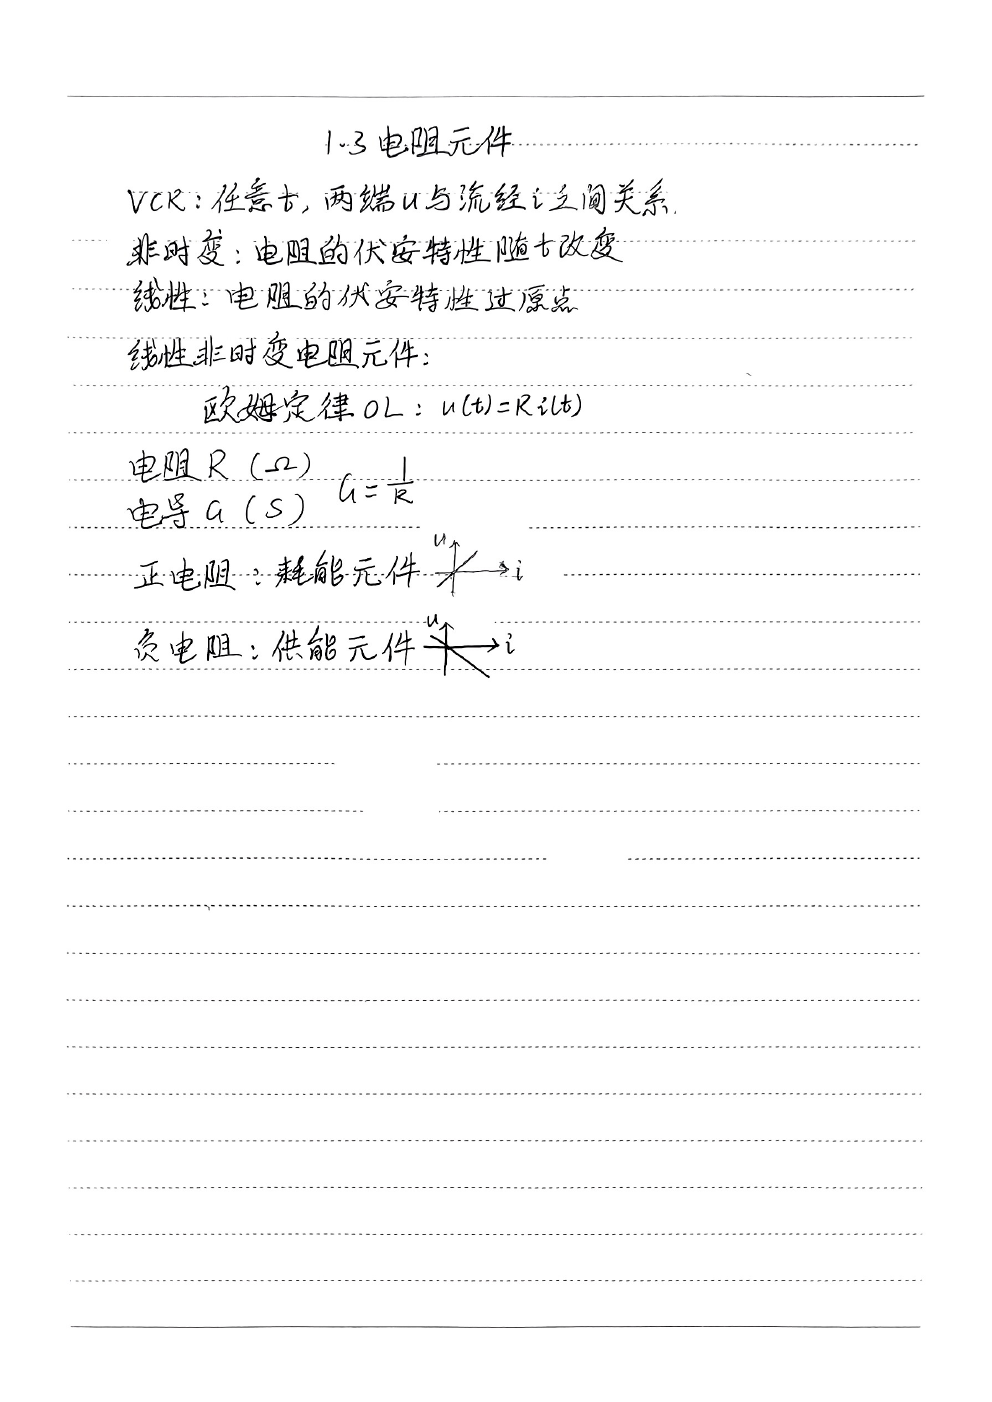 1.3 电阻元件
VCR：任意t，两端u与流经i之间关系.
非时变：电阻的伏安特性随t改变
线性：电阻的伏安特性过原点
线性非时变电阻元件：
欧姆定律OL：u(t)=Ri(t)
电阻R (Ω)
G=1/R
电导G (S)
正电阻：耗能元件
u
i
负电阻：供能元件
u
i